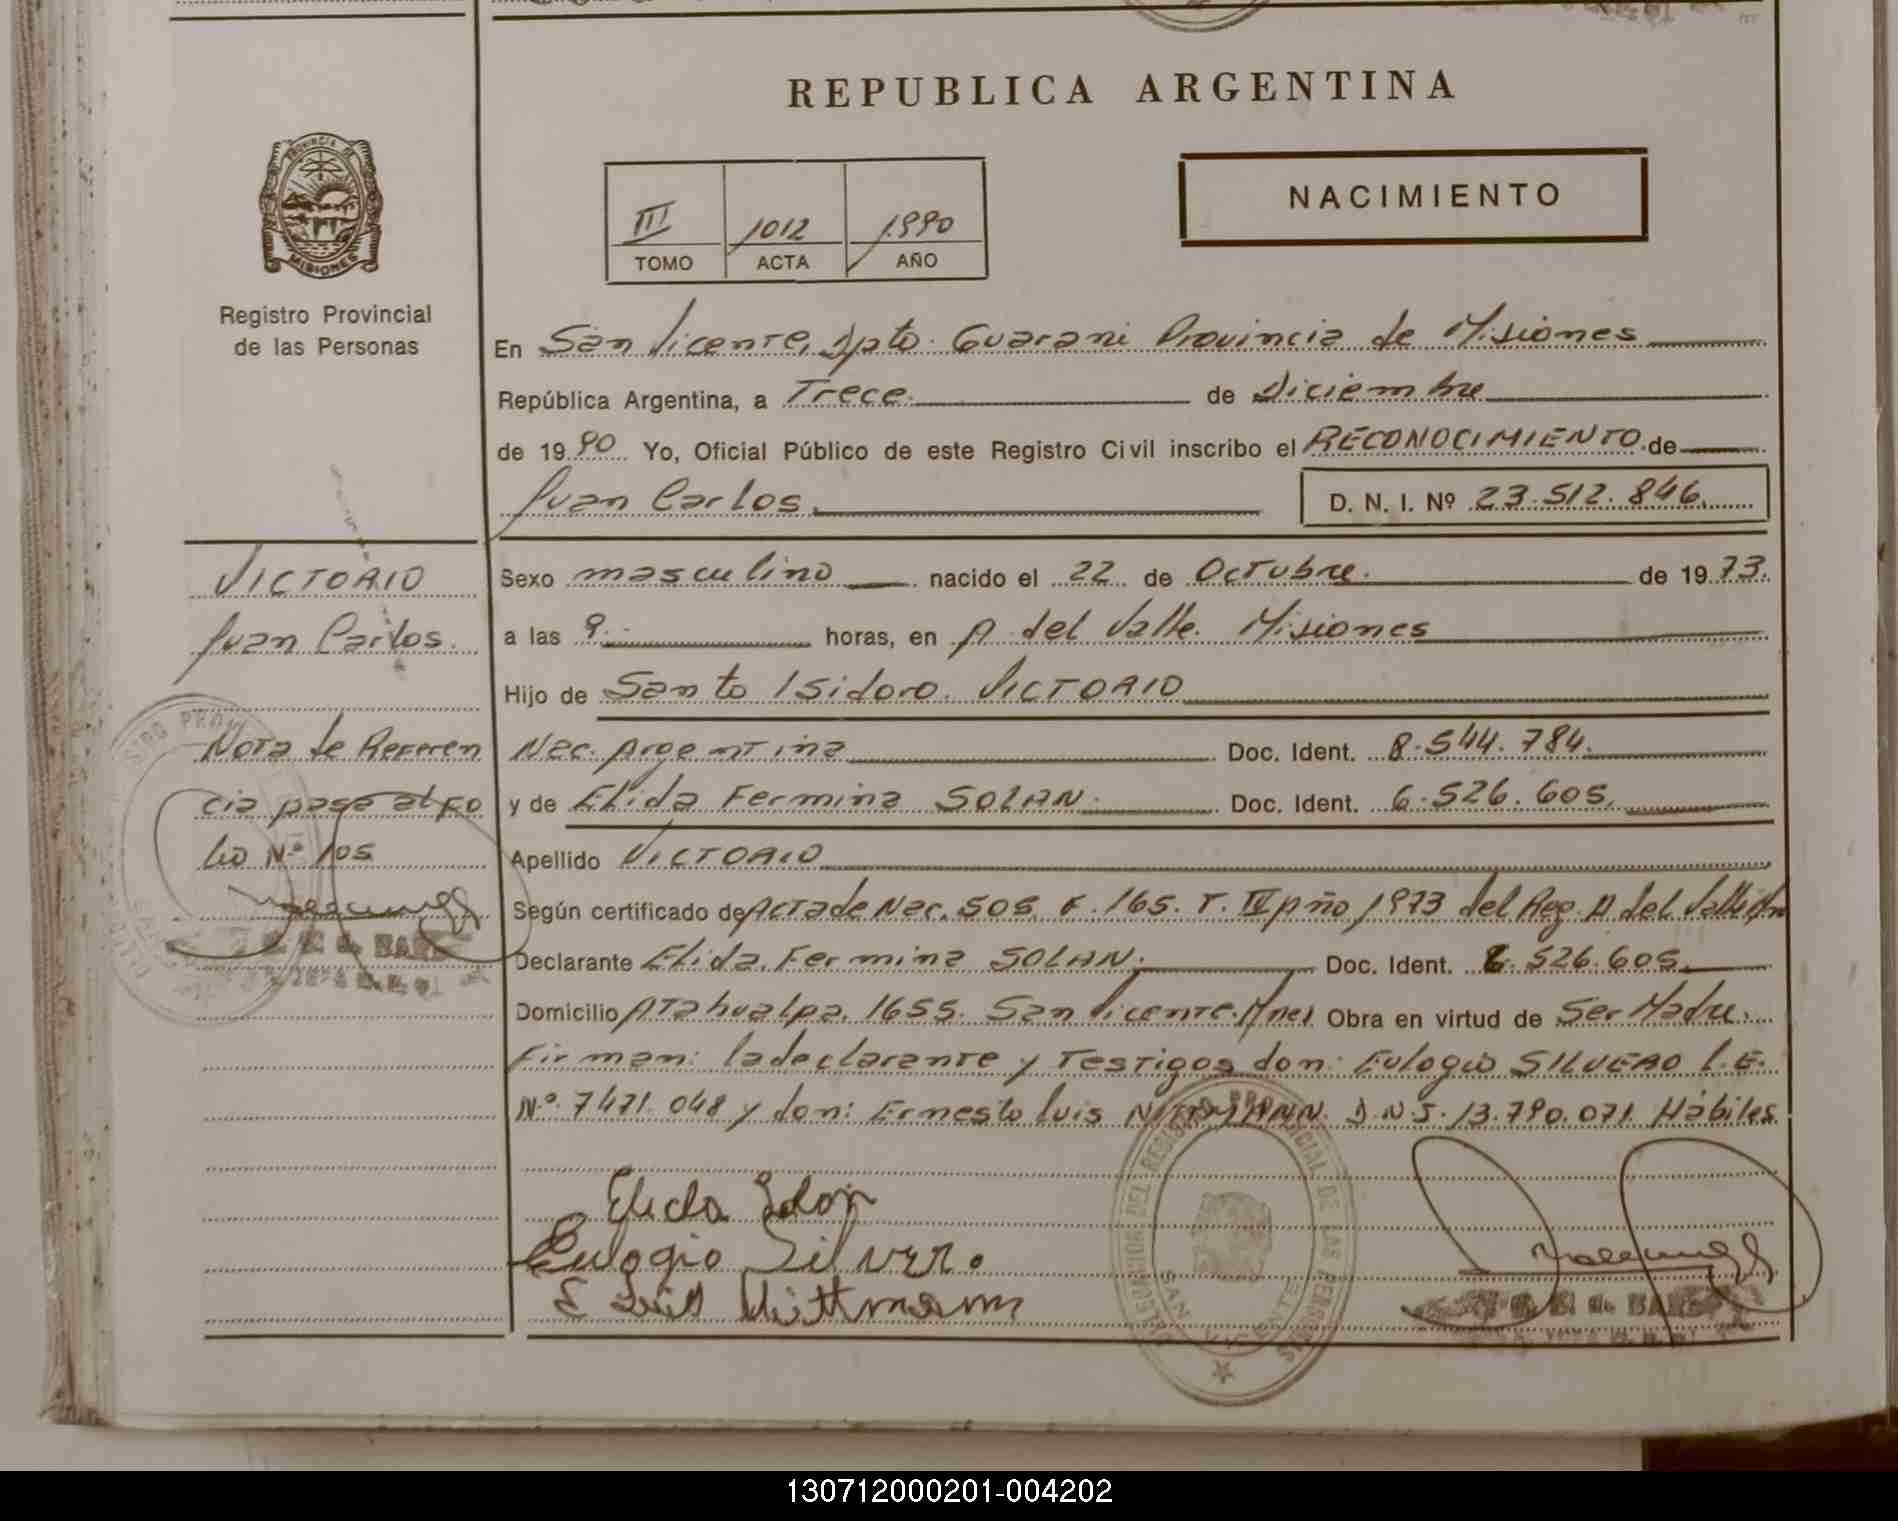 REPUBLICA ARGENTINA
PROVINCIA DE MISIONES
Registro Provincial
de las Personas
III 1012 1990
TOMO ACTA AÑO
NACIMIENTO
En San Vicente, Dpto. Guarani Provincia de Misiones
República Argentina, a Trece. de Diciembre
de 1990 Yo, Oficial Público de este Registro Civil inscribo el RECONOCIMIENTO de
Juan Carlos. D. N. I. Nº 23.512.846.
Sexo masculino nacido el 22 de Octubre. de 1973.
a las 9. horas, en A del Valle. Misiones
Hijo de Santo Isidoro. VICTORIO
Nac. Argentina Doc. Ident. 8.544.784.
y de Elida Fermina SOLAN. Doc. Ident. 6.526.605.
Apellido VICTORIO
Según certificado de Acta de Nac. 505 F. 165. T. IV Año 1973 del Reg. A. del Valle
Declarante Elida. Fermina SOLAN. Doc. Ident. 6.526.605.
Domicilio Atahualpa. 1655. San Vicente. Mnes Obra en virtud de Ser Madre.
Firman: la declarante y Testigos don: Eulogio SILVERO L.E.
Nº 7471.048 y don: Ernesto Luis NITTMANN. D.N.I. 13.790.071. Hábiles.
VICTORIO
Juan Carlos.
Nota de Referen
cia pasa al fo
lio Nº 105
Elida Solan
Eulogio Silvero.
E Luis Nittmann
DELEGACION DEL REGISTRO PROVINCIAL DE LAS PERSONAS
SAN VICENTE
130712000201-004202